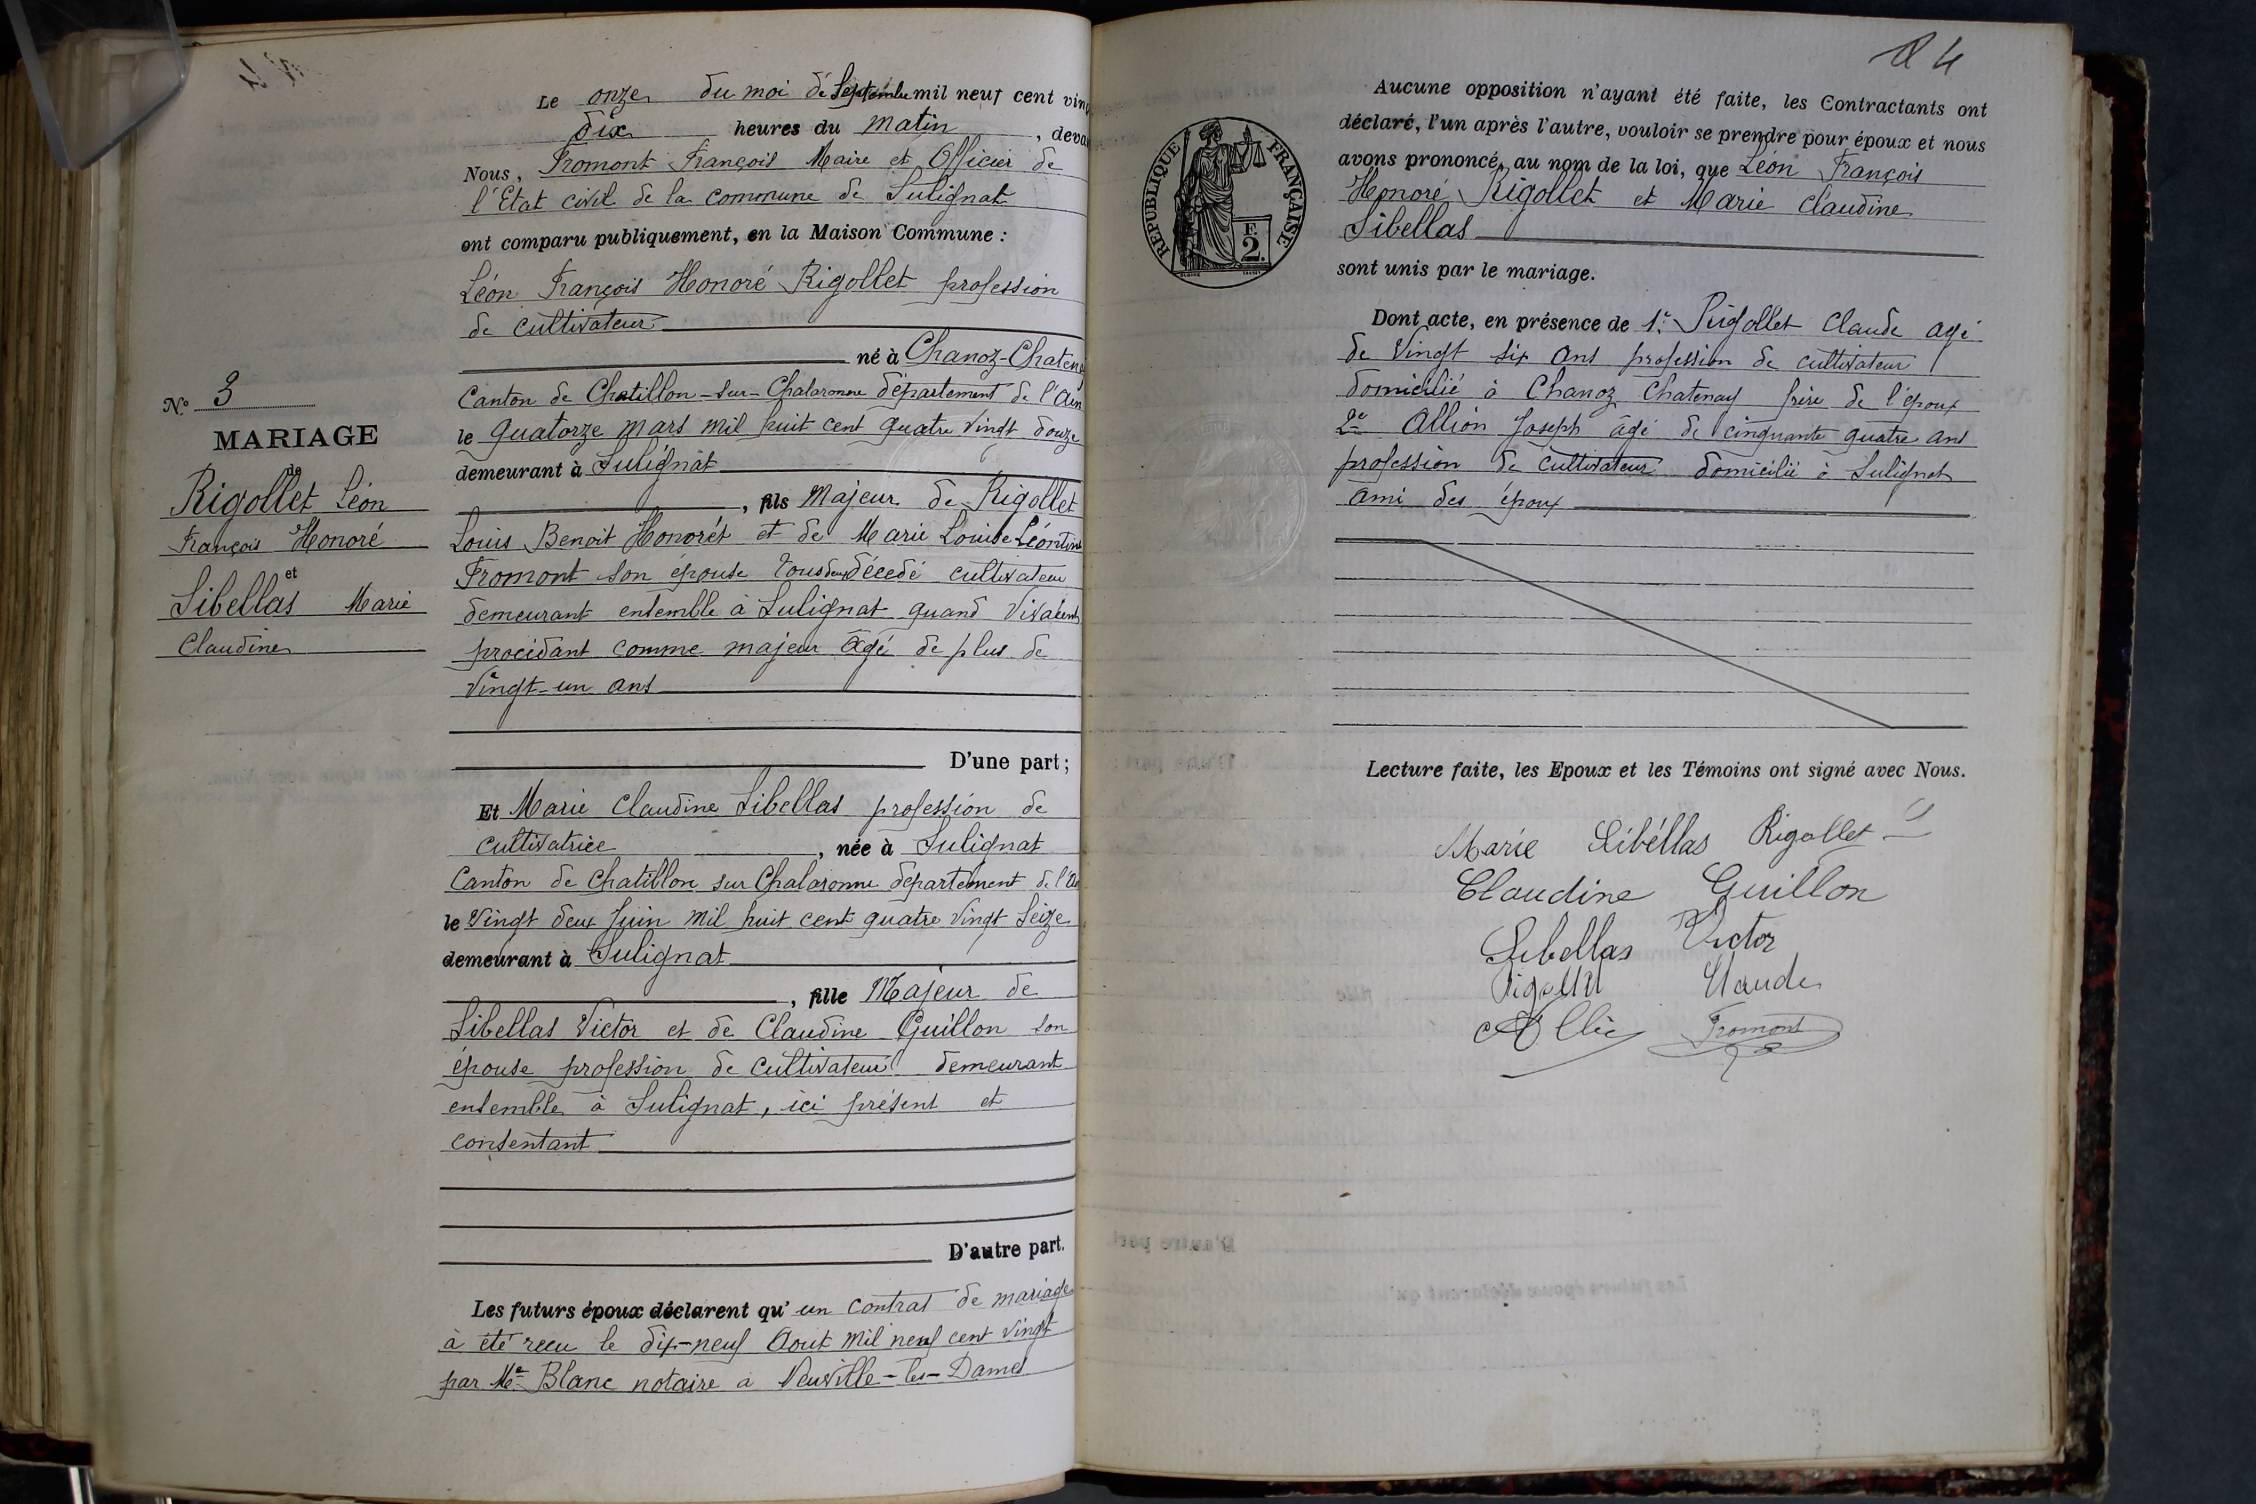 Le onze du moi de Septembre mil neuf cent ving
dix heures du matin, deva
Nous, Fromont François Maire et Officier de
l'Etat civil de la commune de Sulignat
ont comparu publiquement, en la Maison Commune :
Léon François Honoré Rigollet profession
de cultivateur
né à Chanoz-Chatenay
Canton de Chatillon-sur-Chalaronne département de l'Ain
le quatorze mars mil huit cent quatre vingt douze
demeurant à Sulignat
, fils Majeur de Rigollet
Louis Benoit Honorét et de Marie Louise Léontine
Fromont son épouse tous deux décedé cultivateur
demeurant ensemble à Sulignat quand vivaient
procédant comme majeur âgé de plus de
vingt-un ans
D'une part ;
Et Marie Claudine Sibellas profession de
cultivatrice, née à Sulignat
Canton de Chatillon sur Chalaronne département de l'Ain
le vingt deux Juin mil huit cent quatre vingt seize
demeurant à Sulignat
, fille Majeur de
Sibellas Victor et de Claudine Guillon son
épouse profession de cultivateur demeurant
ensemble à Sulignat, ici présent et
consentant
D'autre part.
Les futurs époux déclarent qu' un contrat de mariage
à été recu le dix-neuf Aout mil neuf cent vingt
par Me Blanc notaire à Neuville-les-Dames
N° 3
MARIAGE
de
Rigollet Léon
François Honoré
et
Sibellas Marie
Claudine
4
RÉPUBLIQUE FRANÇAISE
F.
2.
Aucune opposition n'ayant été faite, les Contractants ont
déclaré, l'un après l'autre, vouloir se prendre pour époux et nous
avons prononcé, au nom de la loi, que Léon François
Honoré Rigollet et Marie Claudine
Sibellas
sont unis par le mariage.
Dont acte, en présence de 1° Rigollet Claude agé
de vingt six ans profession de cultivateur
domicilié à Chanoz Chatenay frère de l'époux
2e Allion Joseph âgé de cinquante quatre ans
profession de cultivateur domicilié à Sulignat
ami des époux
Lecture faite, les Epoux et les Témoins ont signé avec Nous.
Marie Sibéllas Rigollet
Claudine Guillon
Sibellas Victor
Rigollet Claude
Fromont